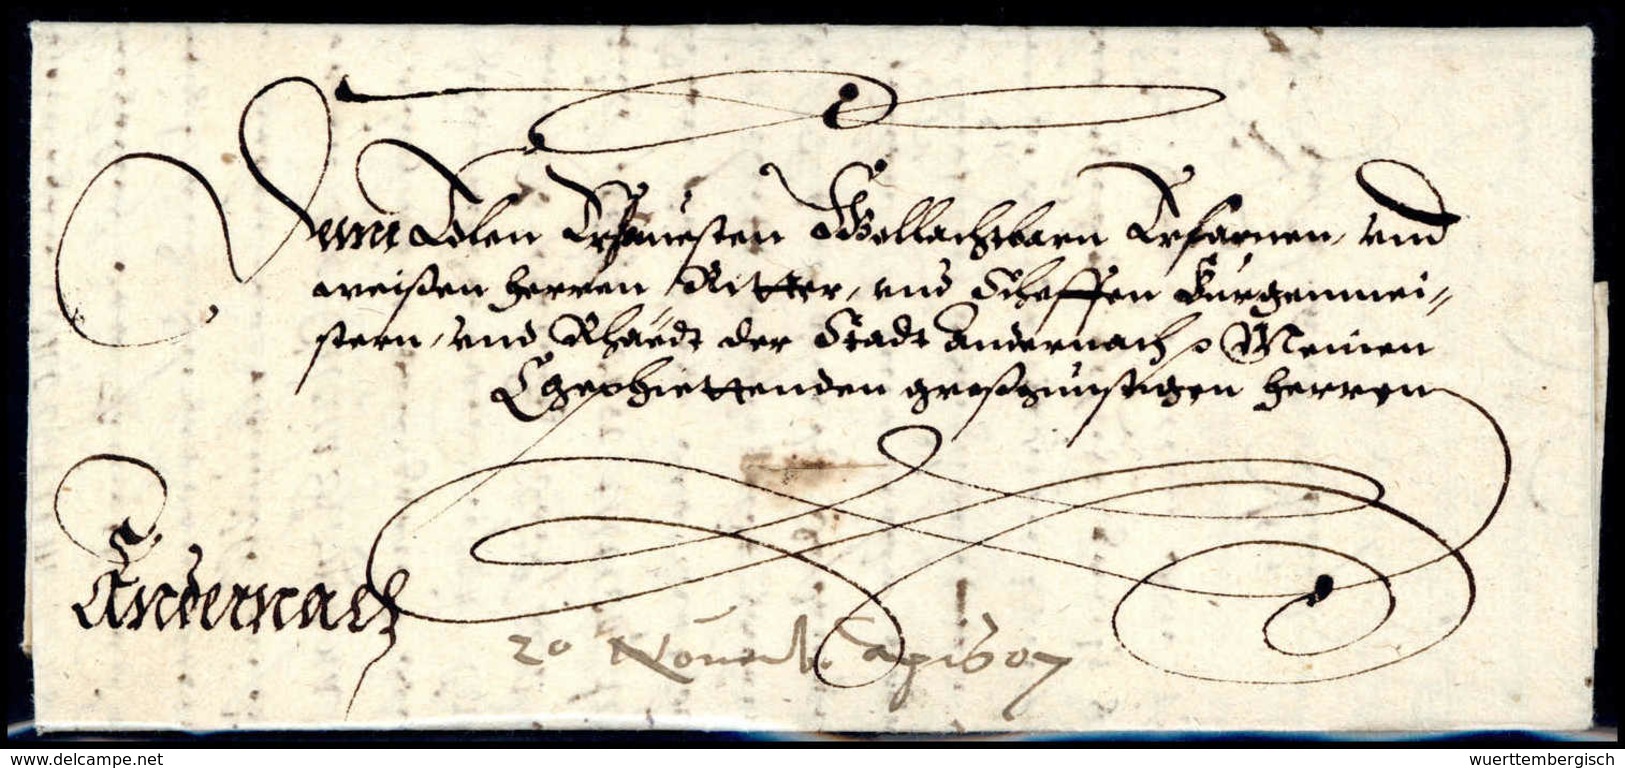 Denn Edlen Ernuesten Wollachtbarn Erfarnen, vnd
weißen Herren Ritter, vnd Scheffen Burgenmei-
stern, vnd Rhaedt der Stadt Andernach Meinen
großgünstigen Herren
Andernach
20 Nouemb. 1607
www.delcampe.net
wuerttembergisch